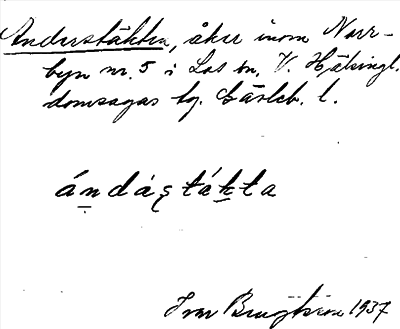 Anderstäkten, åker inom Norr-
byn nr. 5 i Los sn, V. Hälsingl.
domsagas tg. Gävleb. l.
ándáʂtákta
Ivar Bengtsson 1937